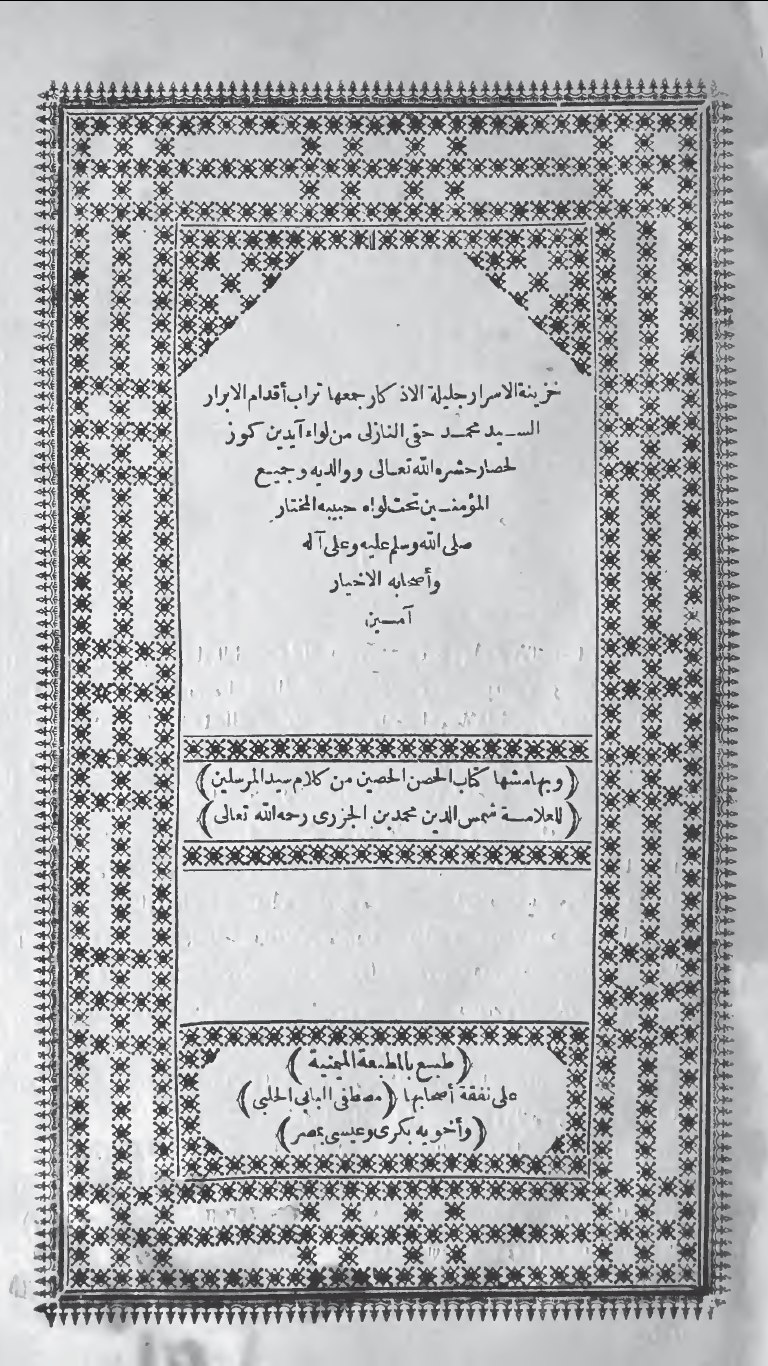 خزينة الاسرار جليلة الاذكار جمعها تراب أقدام الابرار
السيد محمد حقى النازلى من لواء آيدين كوز
لحصار حشره الله تعالى ووالديه وجميع
المؤمنين تحت لواء حبيبه المختار
صلى الله وسلم عليه وعلى آله
وأصحابه الاخيار
آمين
(وبهامشها كتاب الحصن الحصين من كلام سيد المرسلين)
(للعلامة شمس الدين محمد بن الجزرى رحمه الله تعالى)
(طبع بالمطبعة الميمنية)
على نفقة أصحابها (مصطفى البابى الحلبى)
(وأخويه بكرى وعيسى بمصر)